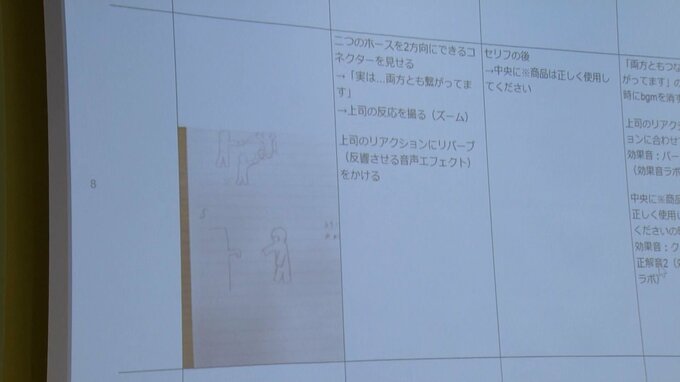 8
二つのホースを2方向にできるコ
ネクターを見せる
→「実は…両方とも繋がってま
す」
→上司の反応を撮る（ズーム）
上司のリアクションにリバーブ
（反響させる音声エフェクト）
をかける
セリフの後
→中央に※商品は正しく使用し
てください
「両方ともつな
がってます」の
時にbgmを消す
上司のリアク
ションに合わせて
効果音：バー
（効果音ラボ
中央に※商品
正しく使用し
くださいの
効果音：ク
正解音2（
ラボ）